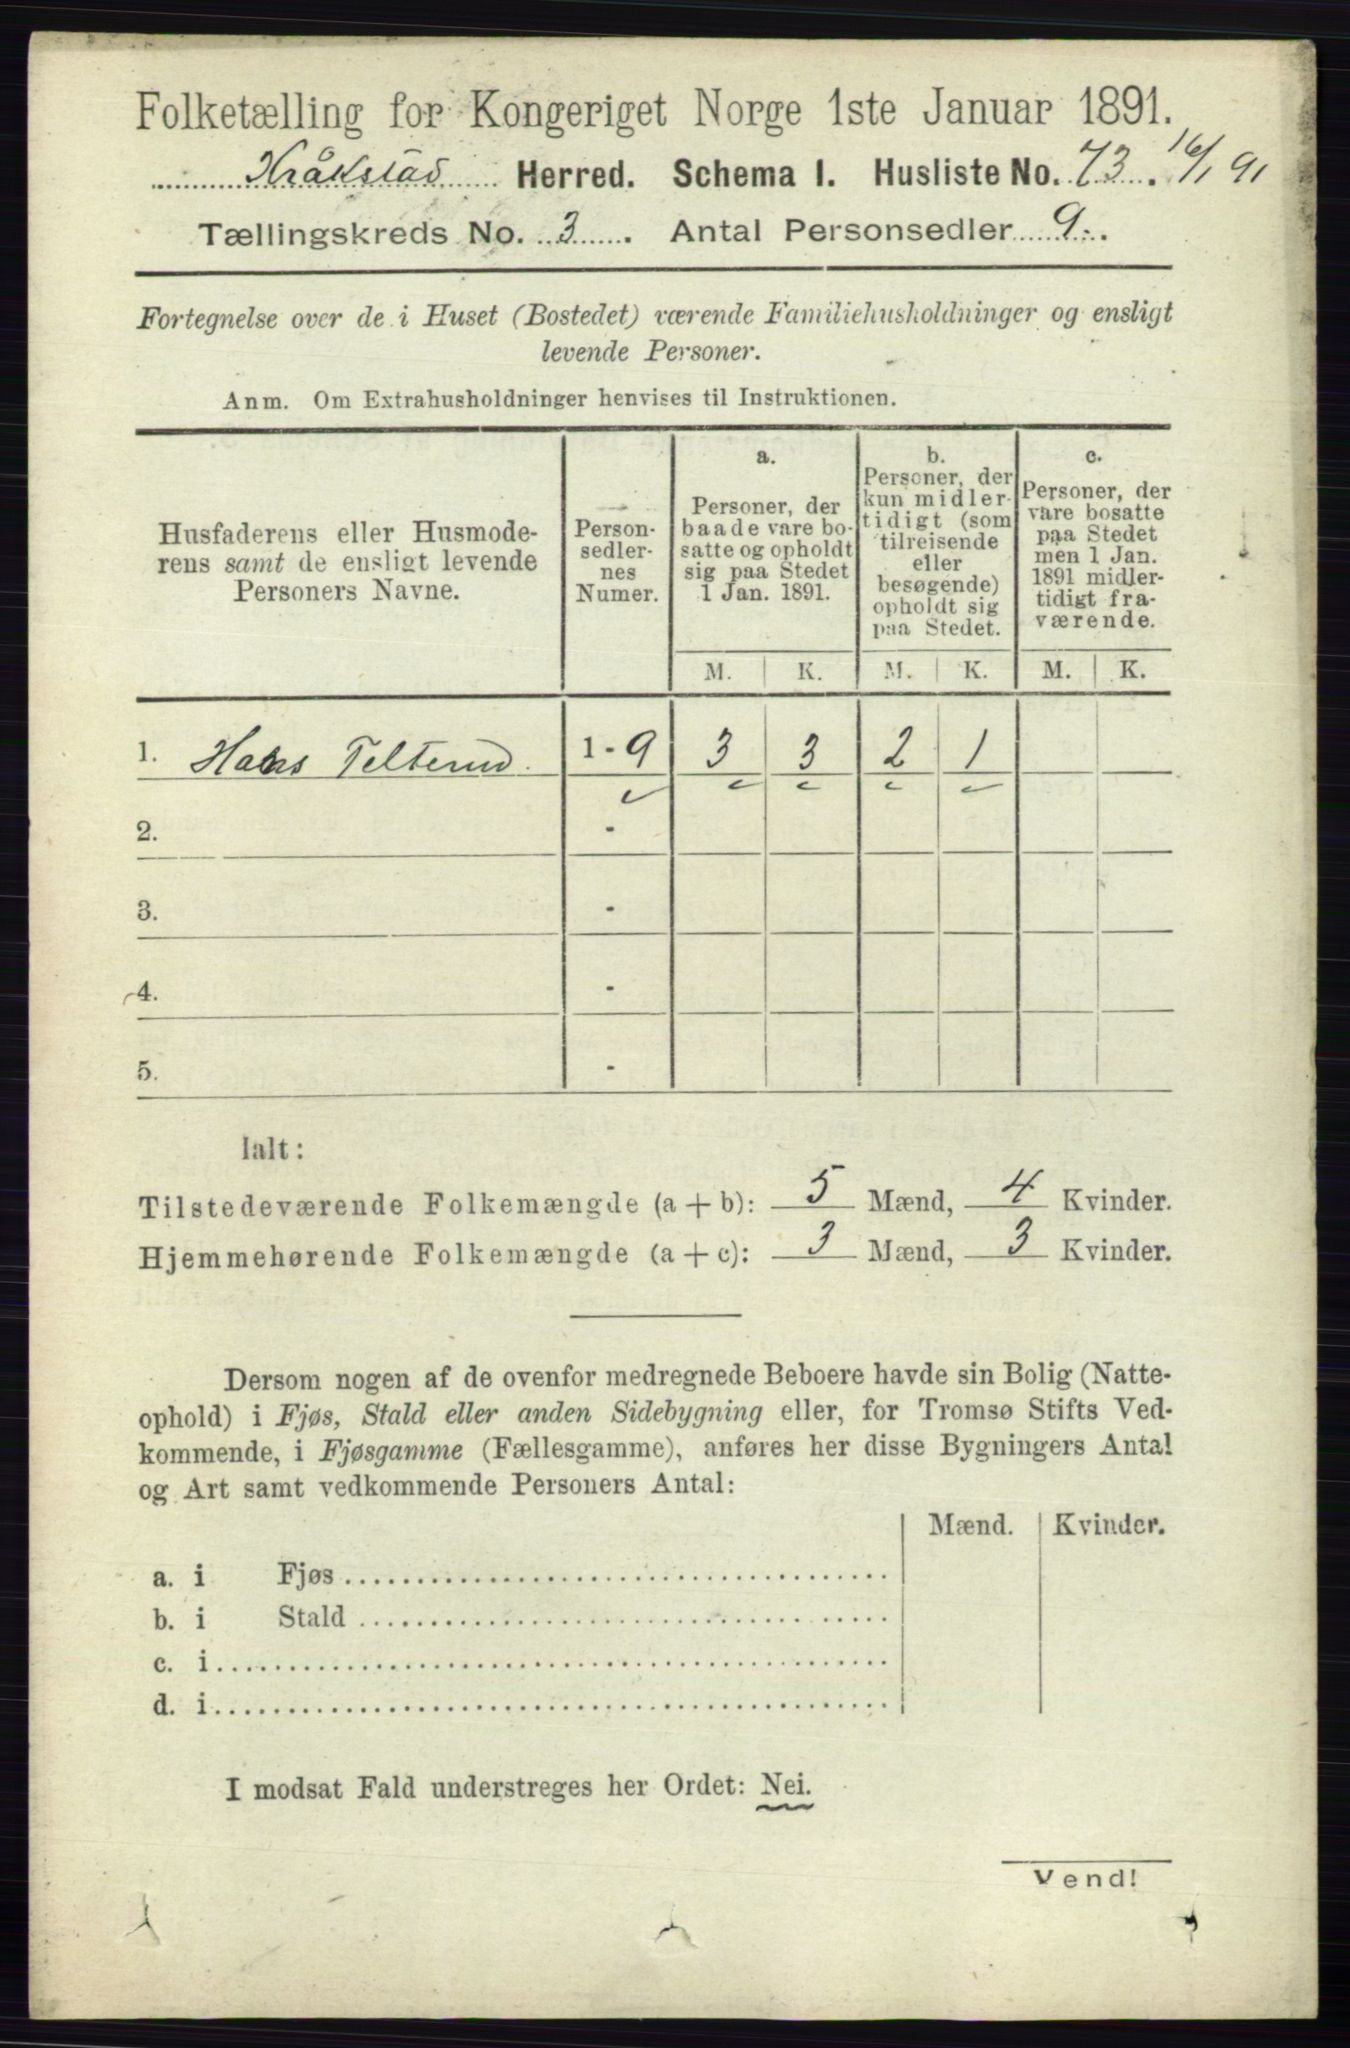 Folketælling for Kongeriget Norge 1ste Januar 1891.
Kråkstad Herred. Schema I. Husliste No. 73. 16/1 91
Tællingskreds No. 3. Antal Personsedler 9.
Fortegnelse over de i Huset (Bostedet) værende Familiehusholdninger og ensligt
levende Personer.
Anm. Om Extrahusholdninger henvises til Instruktionen.
Husfaderens eller Husmode-
rens samt de ensligt levende
Personers Navne.
Person-
sedler-
nes
Numer.
a.
Personer, der
baade vare bo-
satte og opholdt
sig paa Stedet
1 Jan. 1891.
b.
Personer, der
kun midler-
tidigt (som
tilreisende
eller
besøgende)
opholdt sig
paa Stedet.
c.
Personer, der
vare bosatte
paa Stedet
men 1 Jan.
1891 midler-
tidigt fra-
værende.
M. K. M. K. M. K.
1. Hans Telterud. 1 - 9 3 3 2 1
2. -
3. -
4. -
5. -
Ialt:
Tilstedeværende Folkemængde (a + b): 5 Mænd, 4 Kvinder.
Hjemmehørende Folkemængde (a + c): 3 Mænd, 3 Kvinder.
Dersom nogen af de ovenfor medregnede Beboere havde sin Bolig (Natte-
ophold) i Fjøs, Stald eller anden Sidebygning eller, for Tromsø Stifts Ved-
kommende, i Fjøsgamme (Fællesgamme), anføres her disse Bygningers Antal
og Art samt vedkommende Personers Antal:
Mænd. Kvinder.
a. i Fjøs
b. i Stald
c. i
d. i
I modsat Fald understreges her Ordet: Nei.
Vend!